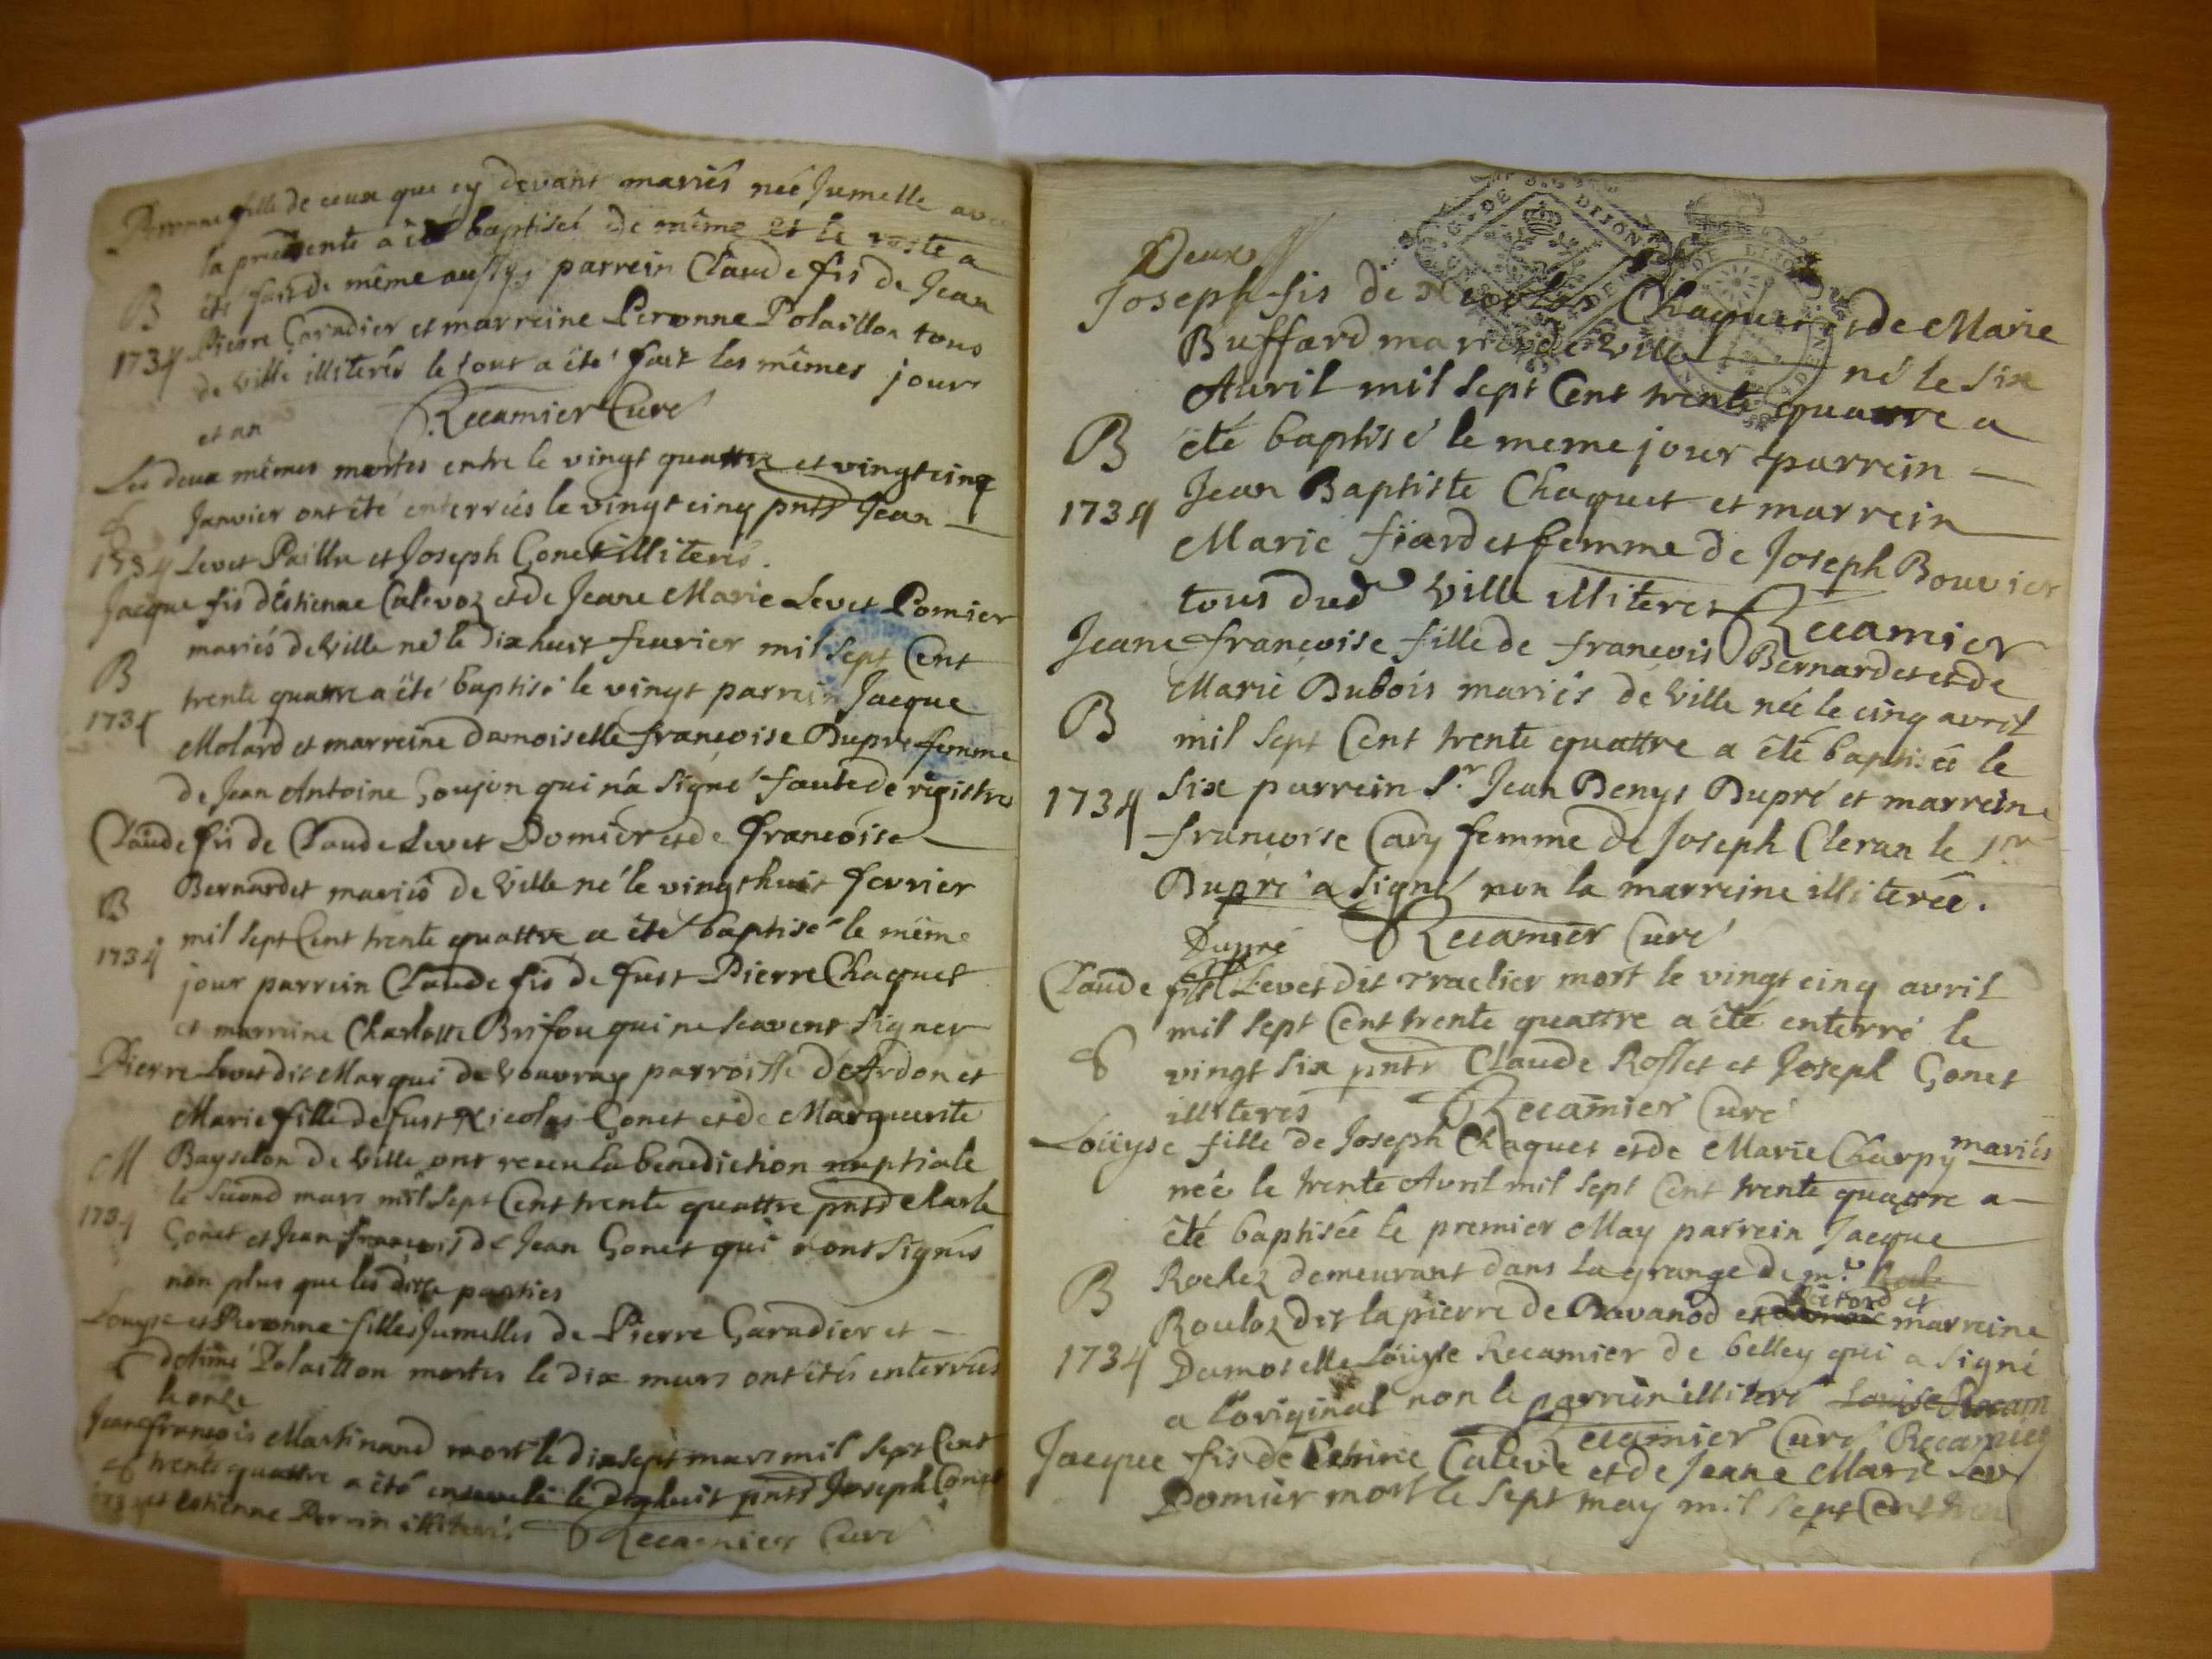 Peronne fille de ceux que cy devant mariés née Jumelle avec
la presente a été baptiseé de même et le reste a
B
été fait de même aussy, parrein Claude fis de Jean
1734
Pierre Garadier et marreine Peronne Polaillon tous
de ville illiterés le tout a été fait les mêmes jour
et an Recamier Curé
Les deux mêmes mortes entre le vingt quattre et vingt cinq
Janvier ont été enterreés le vingt cinq pnts Jean
1734
Levet Pailla et Joseph Gonet illiterés.
Jacque fis d'Estienne Calevoz et de Jeane Marie Levet Pomier
mariés de Ville né le dix huit feuvrier mil sept Cent
B
trente quattre a été baptisé le vingt parrein Jacque
1734
Molard et marreine damoiselle francoise Dupré femme
de Jean Antoine Goujon qui n'a signé faute de registre
Claude fis de Claude Levet Pomier et de francoise
Bernardet mariés de Ville né le vingt huit fevrier
B
mil sept Cent trente quattre a été baptisé le même
1734
jour parrein Claude fis de fust Pierre Chaquet
et marreine Charlotte Brifou qui ne scavent signer
Pierre Levet dit Marqui de Vouvray parroisse d'Ardon et
Marie fille de fust Nicolas Gonet et de Marguerite
M
Bayselon de Ville ont receu la benediction nuptiale
le second mars mil sept Cent trente quattre pnts Charle
1734
Gonet et Jean francois de Jean Gonet qui n'ont signés
non plus que les ditte parties
Louyse et Peronne filles Jumelles de Pierre Garadier et
Polaillon mortes le dix mars ont étés enterreés
le onze
Jean francois Martinand mort le dix sept mars mil sept Cent
trente quattre a été enseveli le dixhuit pnts Joseph Gonet
1734
et estienne Perrin illiterés Recamier Curé
Deux
DE DIJON
Joseph fis de Nicolas Chaquet et de Marie
Buffard mariés de Ville né le six
Avril mil sept Cent trente quattre a
B
été baptisé le meme jour parrein
1734
Jean Baptiste Chaquet et marrein
Marie fiardet femme de Joseph Bouvier
tous dud Ville illiteres Recamier
Jeane francoise fille de francois Bernardet et de
Marie Dubois mariés de Ville neé le cinq avril
B
mil sept Cent trente quattre a été baptiseé le
1734
six parrein Sr Jean Denys Dupré et marreine
francoise Cary femme de Joseph Cleran le sr
Dupré a signé non la marreine illitereé.
Dupré Recamier Curé
Claude Levet dit Traclier mort le vingt cinq avril
mil sept Cent trente quattre a été enterré le
vingt six pnts Claude Rosset et Joseph Gonet
illiterés Recamier Curé
Loüyse fille de Joseph Chaquet et de Marie Charpy mariés
neé le trente Avril mil sept Cent trente quattre a
été baptiseé le premier May parrein Jacque
B
Rochez demeurant dans la grange de mr
Rouloz dit la pierre de Chavanod et marreine
1734
Damoiselle Loüyse Recamier de belley qui a signé
a l'original non le parrein illiteré Louise Recam
Recamier Curé Recamier
Jacque fis de Calevo et de Jeane Marie Lev
Pomier mort le sept may mil sept Cent tren